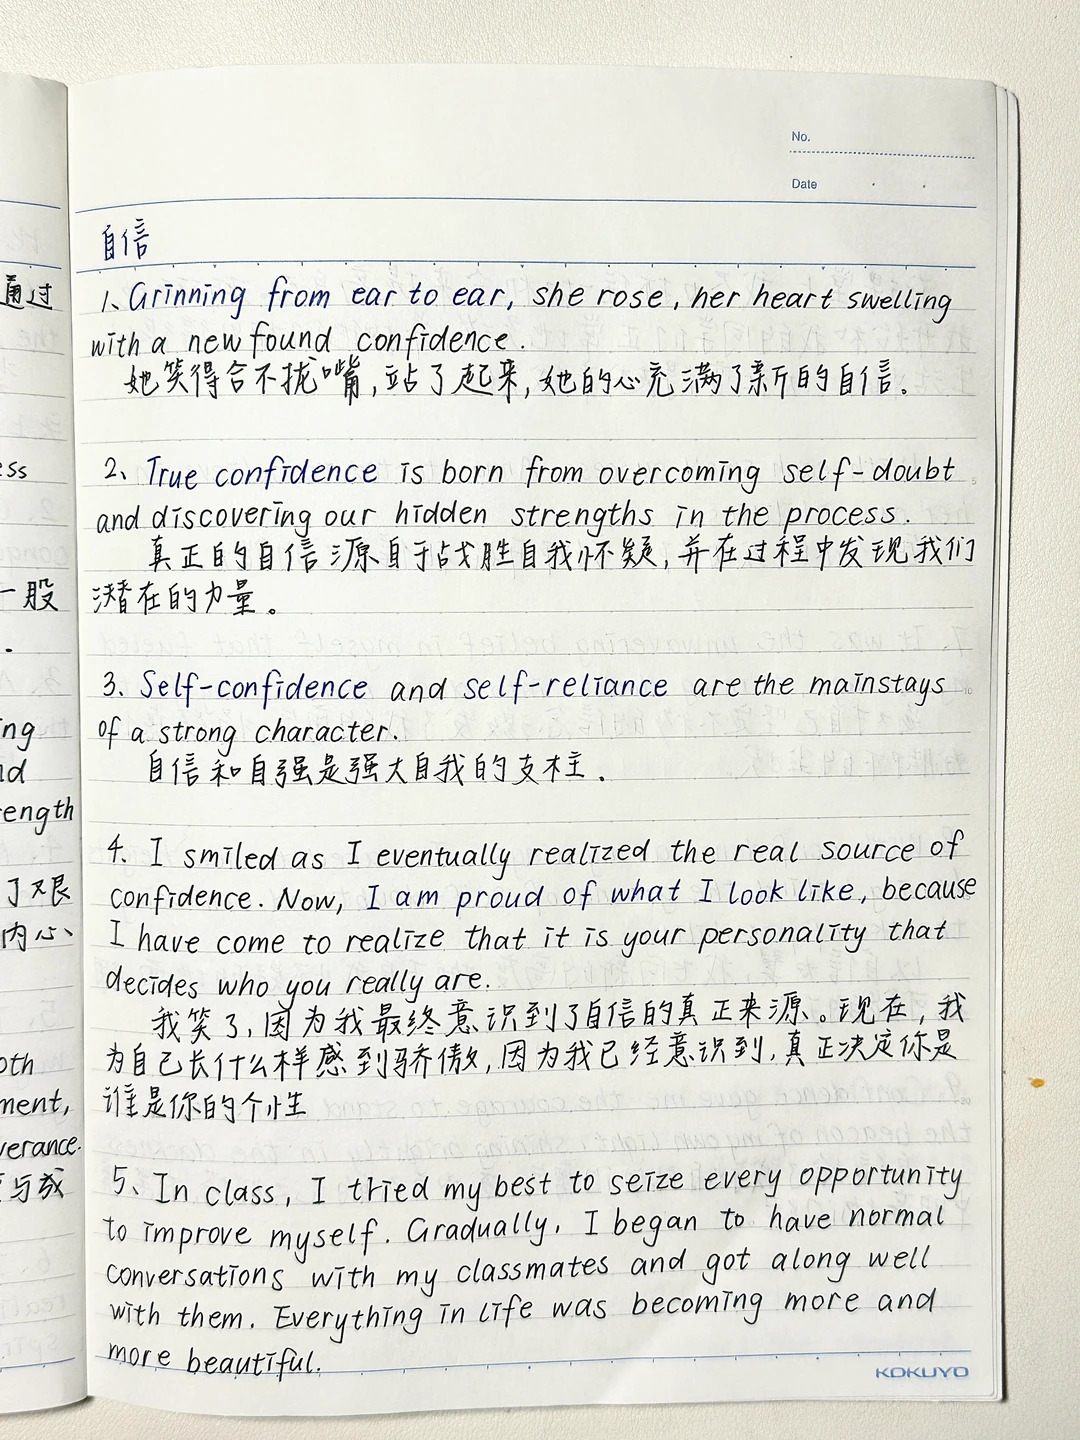 No.
Date
自信
1、Grinning from ear to ear, she rose, her heart swelling
with a new found confidence.
她笑得合不拢嘴,站了起来,她的心充满了新的自信。
2、True confidence is born from overcoming self-doubt
and discovering our hidden strengths in the process.
真正的自信源自于战胜自我怀疑,并在过程中发现我们
潜在的力量。
3. Self-confidence and self-reliance are the mainstays
of a strong character.
自信和自强是强大自我的支柱.
4. I smiled as I eventually realized the real source of
confidence. Now, I am proud of what I look like, because
I have come to realize that it is your personality that
decides who you really are.
我笑了,因为我最终意识到了自信的真正来源。现在,我
为自己长什么样感到骄傲,因为我已经意识到,真正决定你是
谁是你的个性
5、In class, I tried my best to seize every opportunity
to improve myself. Gradually, I began to have normal
conversations with my classmates and got along well
with them. Everything in life was becoming more and
more beautiful.
KOKUYO
通过
ess
一股
.
ing
nd
rength
了艰
内心、
oth
ment,
verance.
与成